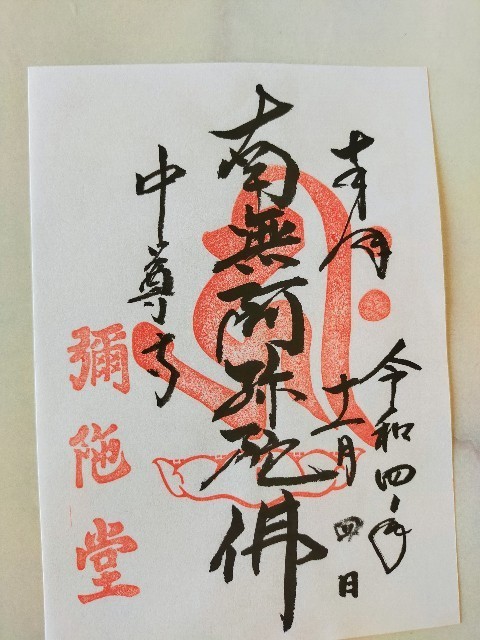 奉拝
令和四年
十一月四日
南無阿弥陀佛
中尊寺
彌陀堂